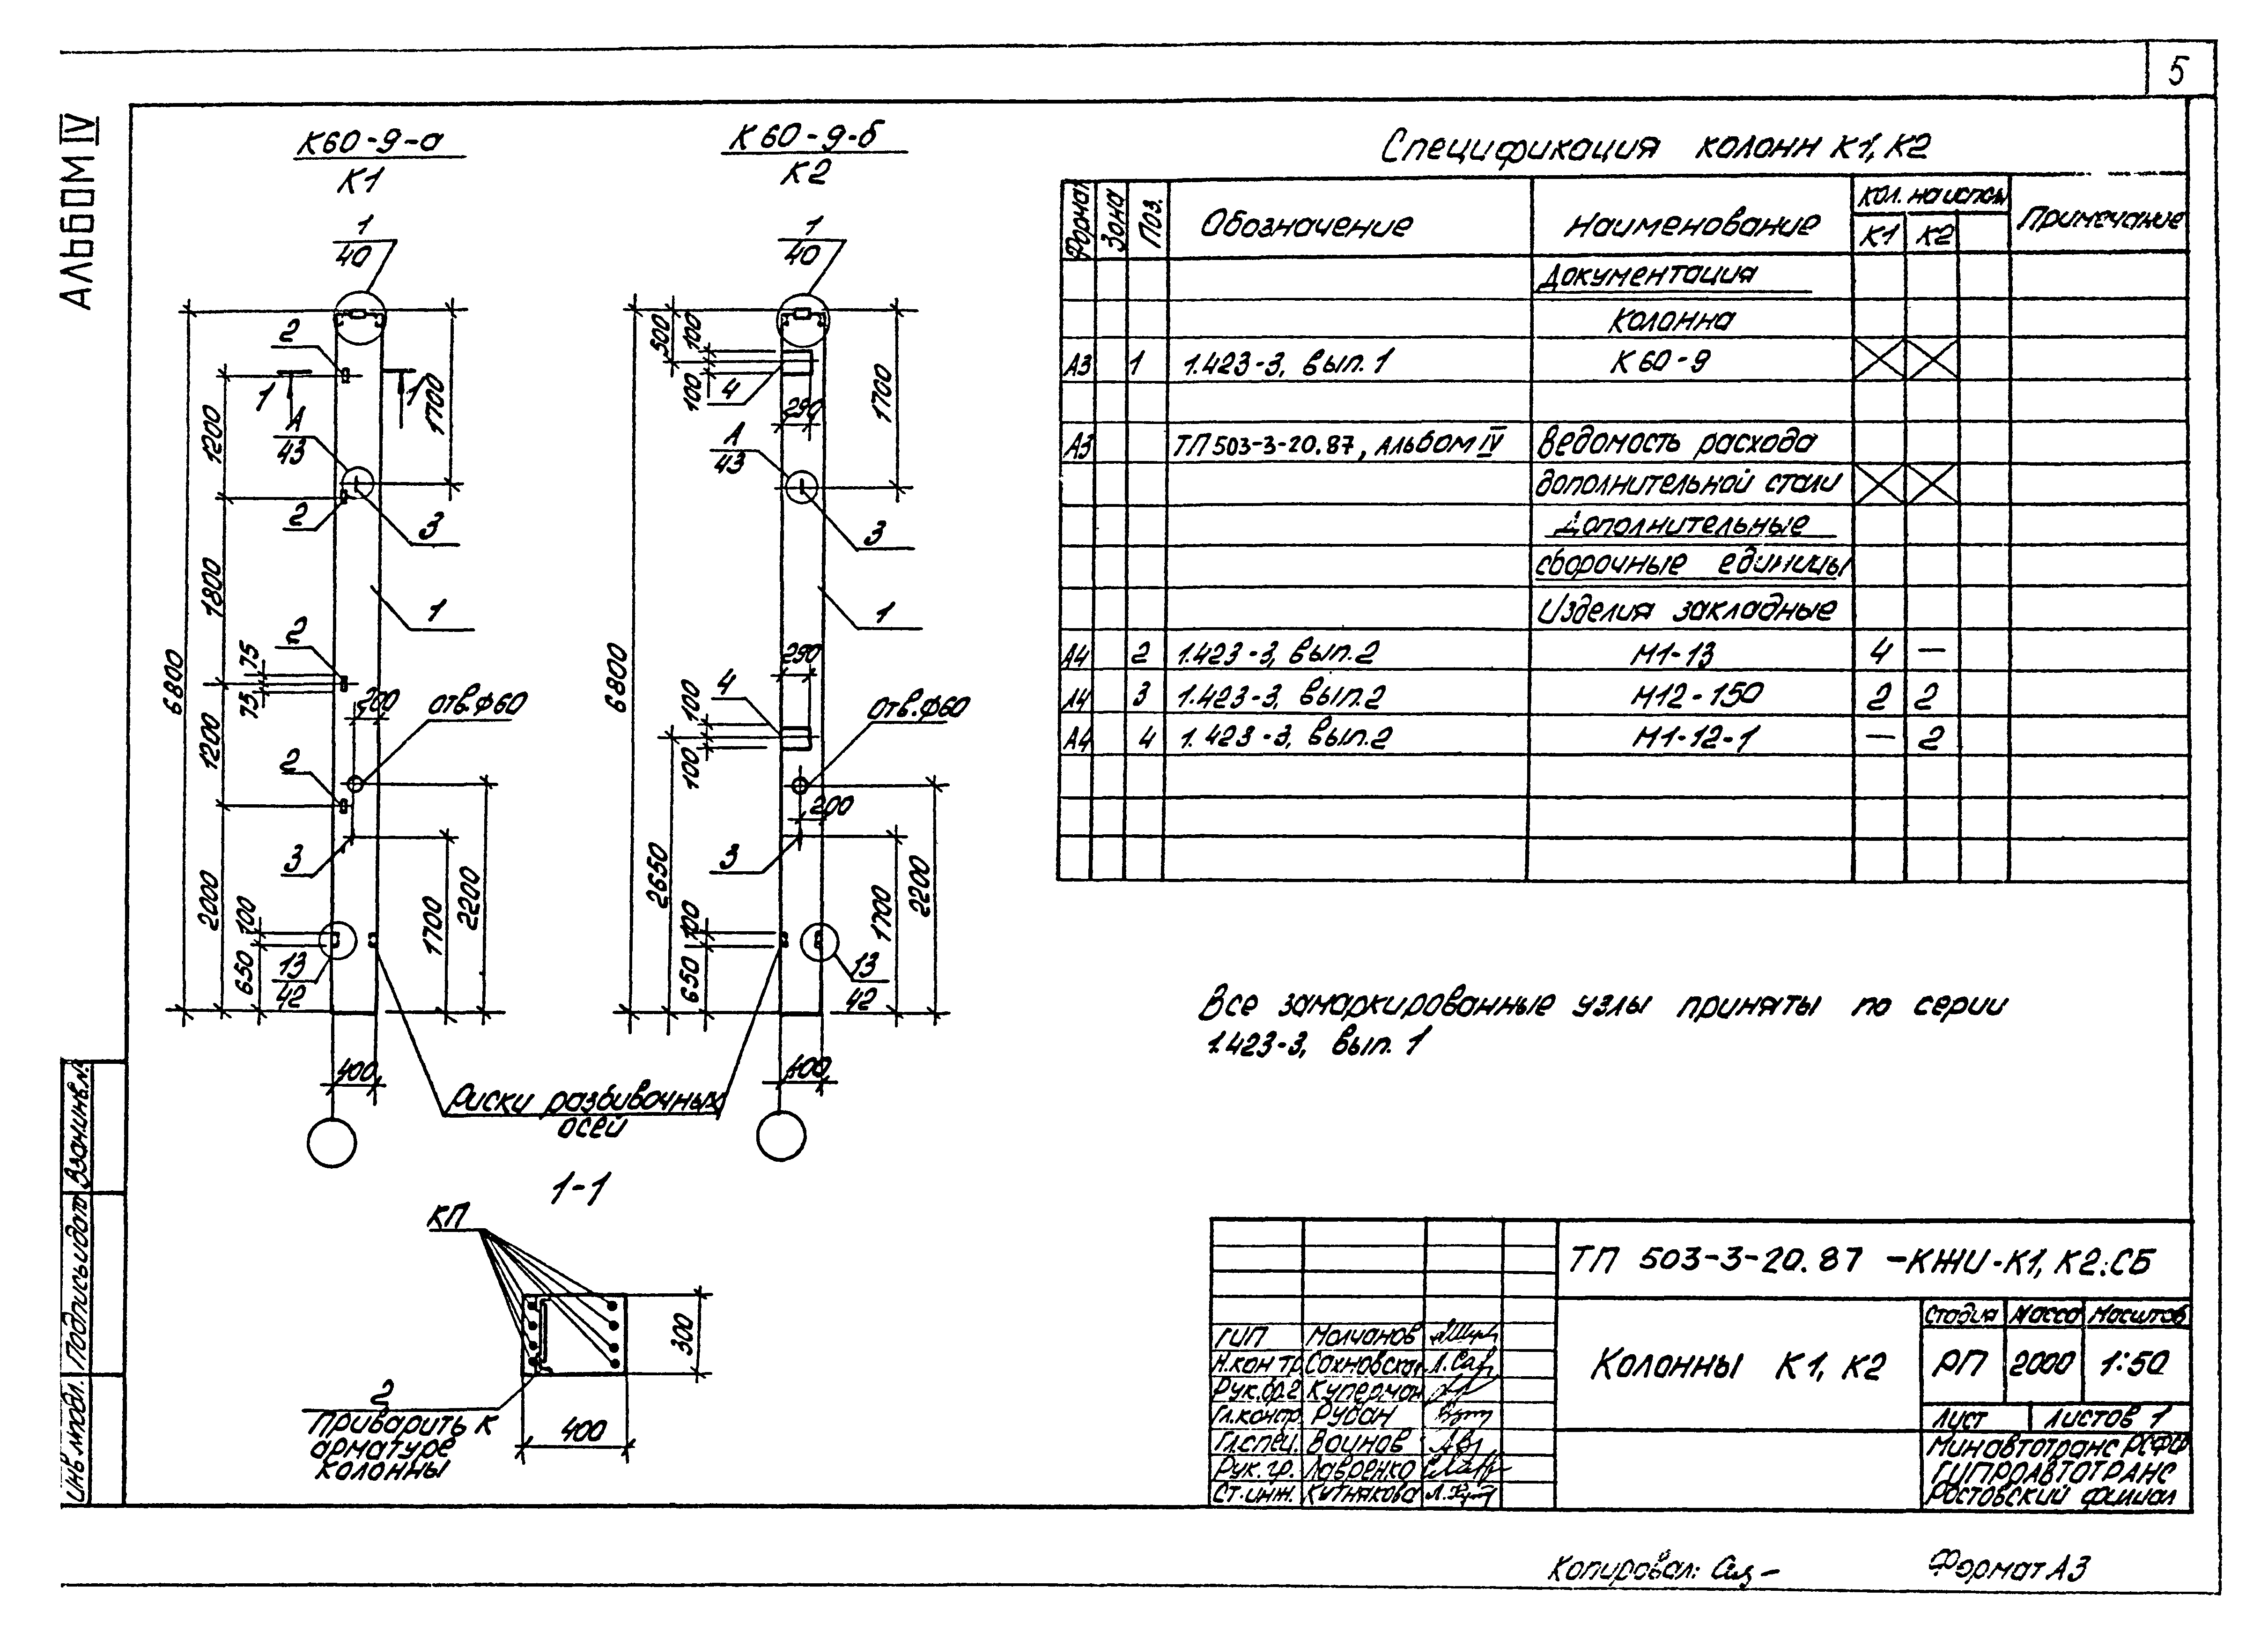 5
АЛЬБОМ IV
К60-9-а
К1
1
40
2
1
1
1700
А
43
1200
2
3
1800
1
6800
2
75
75
200
отв.Ф60
1200
2
3
2000
100
650
13
42
1700
2200
400
К60-9-б
К2
1
40
500
100
100
4
290
1700
А
43
3
1
6800
290
4
100
100
отв.Ф60
200
3
2650
100
650
13
42
1700
2200
400
Риски разбивочных
осей
1-1
КП
300
400
2
Приварить к
арматуре
колонны
Спецификация колонн К1, К2
Формат Зона Поз. Обозначение Наименование Кол. на испол Примечание
К1 К2
Документация
Колонна
А3 1 1.423-3, вып. 1 К60-9
А3 ТП 503-3-20.87, АЛЬБОМ IV Ведомость расхода
дополнительной стали
Дополнительные
сборочные единицы
Изделия закладные
А4 2 1.423-3, вып. 2 М1-13 4 —
А4 3 1.423-3, вып. 2 М12-150 2 2
А4 4 1.423-3, вып. 2 М1-12-1 — 2
Все замаркированные узлы приняты по серии
1.423-3, вып. 1
ТП 503-3-20.87 -КЖИ-К1, К2.СБ
Колонны К1, К2
Стадия Масса Масштаб
РП 2000 1:50
Лист Листов 1
Минавтотранс РСФСР
ГИПРОАВТОТРАНС
Ростовский филиал
ГИП Молчанов
Н.контр Сахновская
Рук.бр.2 Куперман
Гл.констр. Рубан
Гл.спец. Воинов
Рук. гр. Лавренко
Ст.инж. Кутнякова
Взам.инв.№
Подпись и дата
Инв.№ подл.
Копировал:
Формат А3